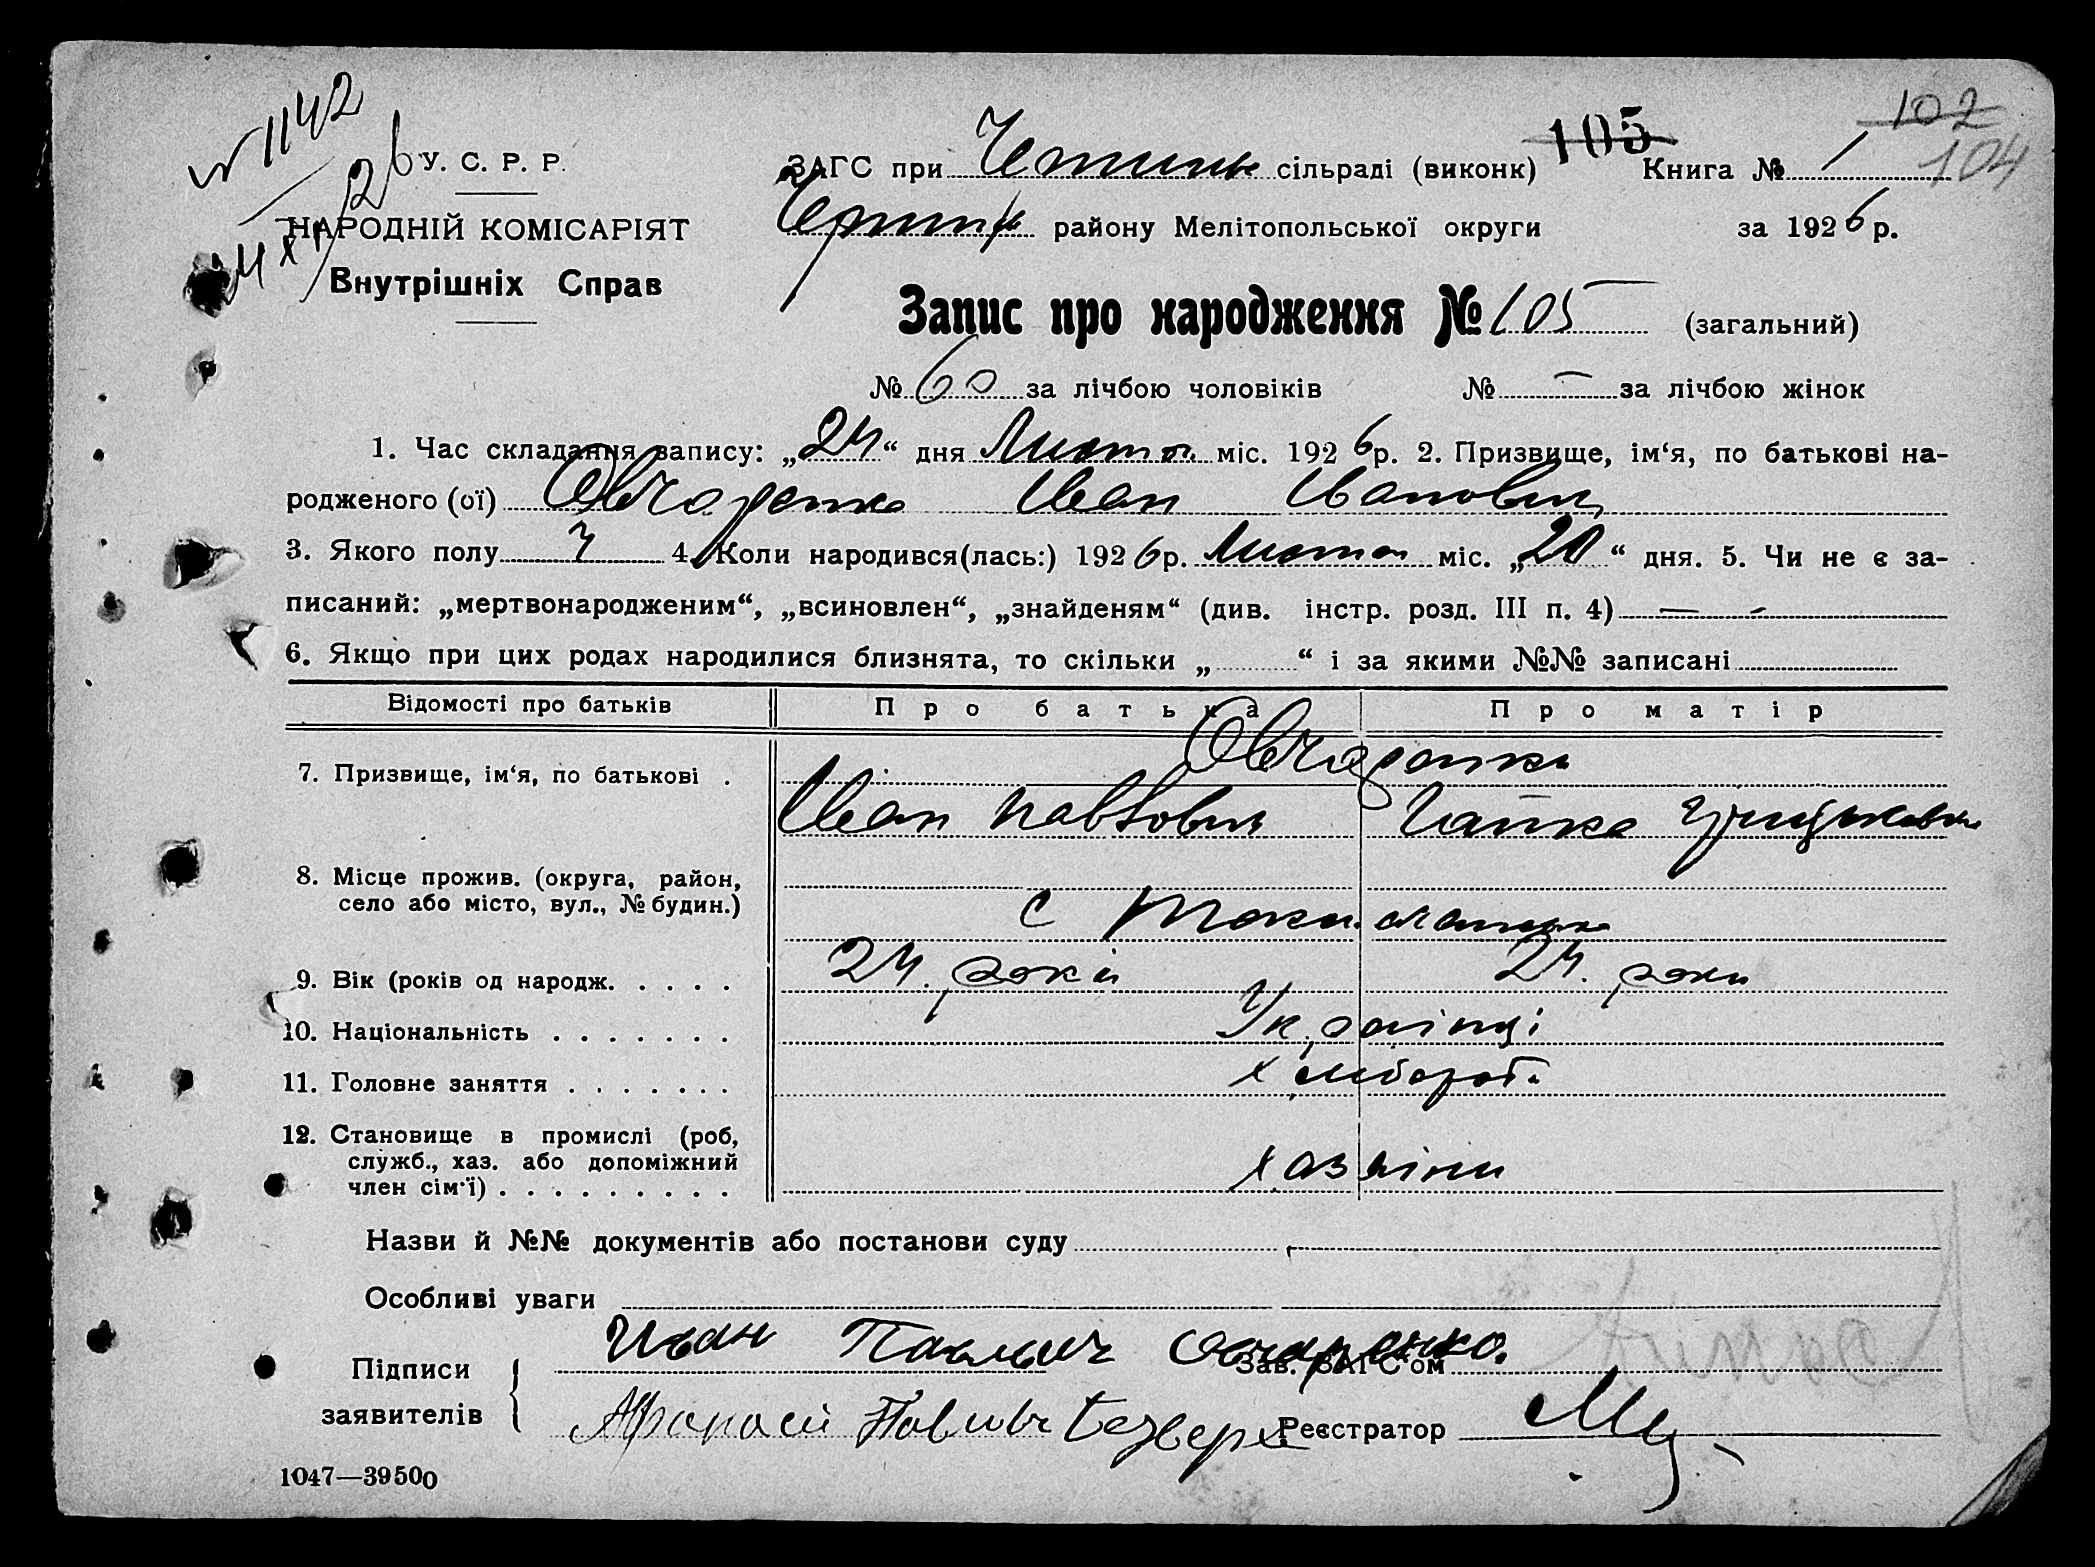 № 1142
4 XI 26
102
104
105
У. С. Р. Р.
НАРОДНІЙ КОМІСАРІЯТ
Внутрішніх Справ
ЗАГС при сільраді (виконк) Книга № 1
району Мелітопольської округи за 1926 р.
Запис про народження № 105 (загальний)
№ 60 за лічбою чоловіків № — за лічбою жінок
1. Час складання запису: „24“ дня Лютого міс. 1926 р. 2. Призвище, ім‘я, по батькові на-
родженого (ої) Овчаренко Иван Иванович
3. Якого полу Ч 4. Коли народився(лась:) 1926 р. Лютого міс. „20“ дня. 5. Чи не є за-
писаний: „мертвонародженим“, „всиновлен“, „знайденям“ (див. інстр. розд. III п. 4) —
6. Якщо при цих родах народилися близнята, то скільки „ “ і за якими №№ записані
Відомості про батьків Про батька Про матір
7. Призвище, ім‘я, по батькові . Овчаренки
Иван Павлович
8. Місце прожив. (округа, район,
село або місто, вул., № будин.)
с
9. Вік (років од народж. . . . . 24. роки 24. роки
10. Національність . . . . . . . Українці
11. Головне заняття . . . . . . . хлібороби
12. Становище в промислі (роб,
служб., хаз. або допоміжний
член сім‘ї) . . . . . . . . . хазяіни
Назви й №№ документів або постанови суду
Особливі уваги
Підписи
заявителів
Иван Павлович Овчаренко.
Зав. ЗАГС‘ом
Афанасий Павлович Безверх
Реєстратор
1047—39500